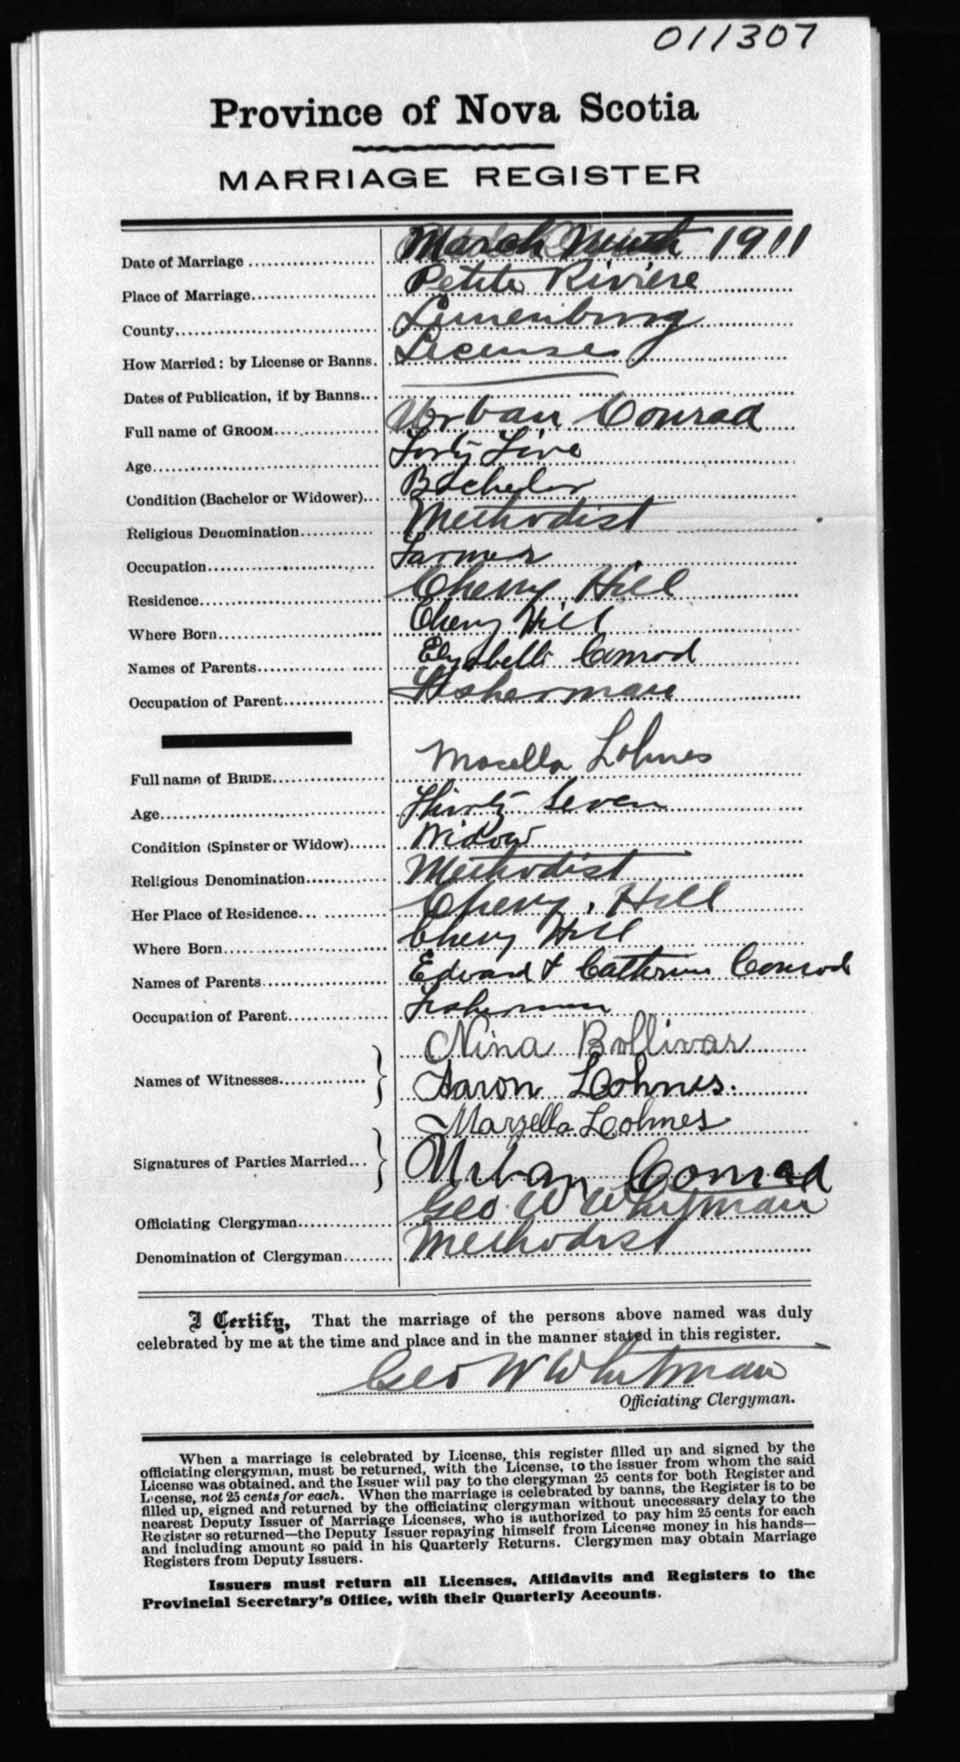 011307
Province of Nova Scotia
MARRIAGE REGISTER
Date of Marriage March Ninth 1911
Place of Marriage Petite Riviere
County Lunenburg
How Married: by License or Banns. License
Dates of Publication, if by Banns
Full name of GROOM Urban Conrad
Age Forty Five
Condition (Bachelor or Widower) Bachelor
Religious Denomination Methodist
Occupation Farmer
Residence Cherry Hill
Where Born Cherry Hill
Names of Parents Conrad
Occupation of Parent Fisherman
Full name of BRIDE Mosella Lohnes
Age Thirty Seven
Condition (Spinster or Widow) Widow
Religious Denomination Methodist
Her Place of Residence Cherry Hill
Where Born Cherry Hill
Names of Parents Edward & Cathrine Conrad
Occupation of Parent Fisherman
Nina Bollivar
Names of Witnesses Aaron Lohnes.
Marzella Lohnes
Signatures of Parties Married Urban Conrad
Officiating Clergyman Geo W Whitman
Denomination of Clergyman Methodist
I Certify, That the marriage of the persons above named was duly
celebrated by me at the time and place and in the manner stated in this register.
Geo W Whitman
Officiating Clergyman.
When a marriage is celebrated by License, this register filled up and signed by the
officiating clergyman, must be returned, with the License, to the issuer from whom the said
License was obtained. and the Issuer will pay to the clergyman 25 cents for both Register and
License, not 25 cents for each. When the marriage is celebrated by banns, the Register is to be
filled up, signed and returned by the officiating clergyman without unnecessary delay to the
nearest Deputy Issuer of Marriage Licenses, who is authorized to pay him 25 cents for each
Register so returned—the Deputy Issuer repaying himself from License money in his hands—
and including amount so paid in his Quarterly Returns. Clergymen may obtain Marriage
Registers from Deputy Issuers.
Issuers must return all Licenses, Affidavits and Registers to the
Provincial Secretary's Office, with their Quarterly Accounts.